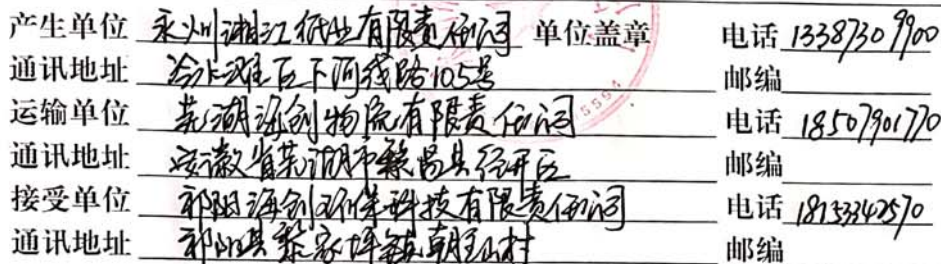 产生单位 永州湘江纸业有限责任公司 单位盖章 电话 13387309900
通讯地址 冷水滩区下河线路105号 邮编
运输单位 芜湖海创物流有限责任公司 电话 18507901770
通讯地址 安徽省芜湖市繁昌县经开区 邮编
接受单位 祁阳海创环保科技有限责任公司 电话 18153342570
通讯地址 祁阳县黎家坪镇朝山村 邮编